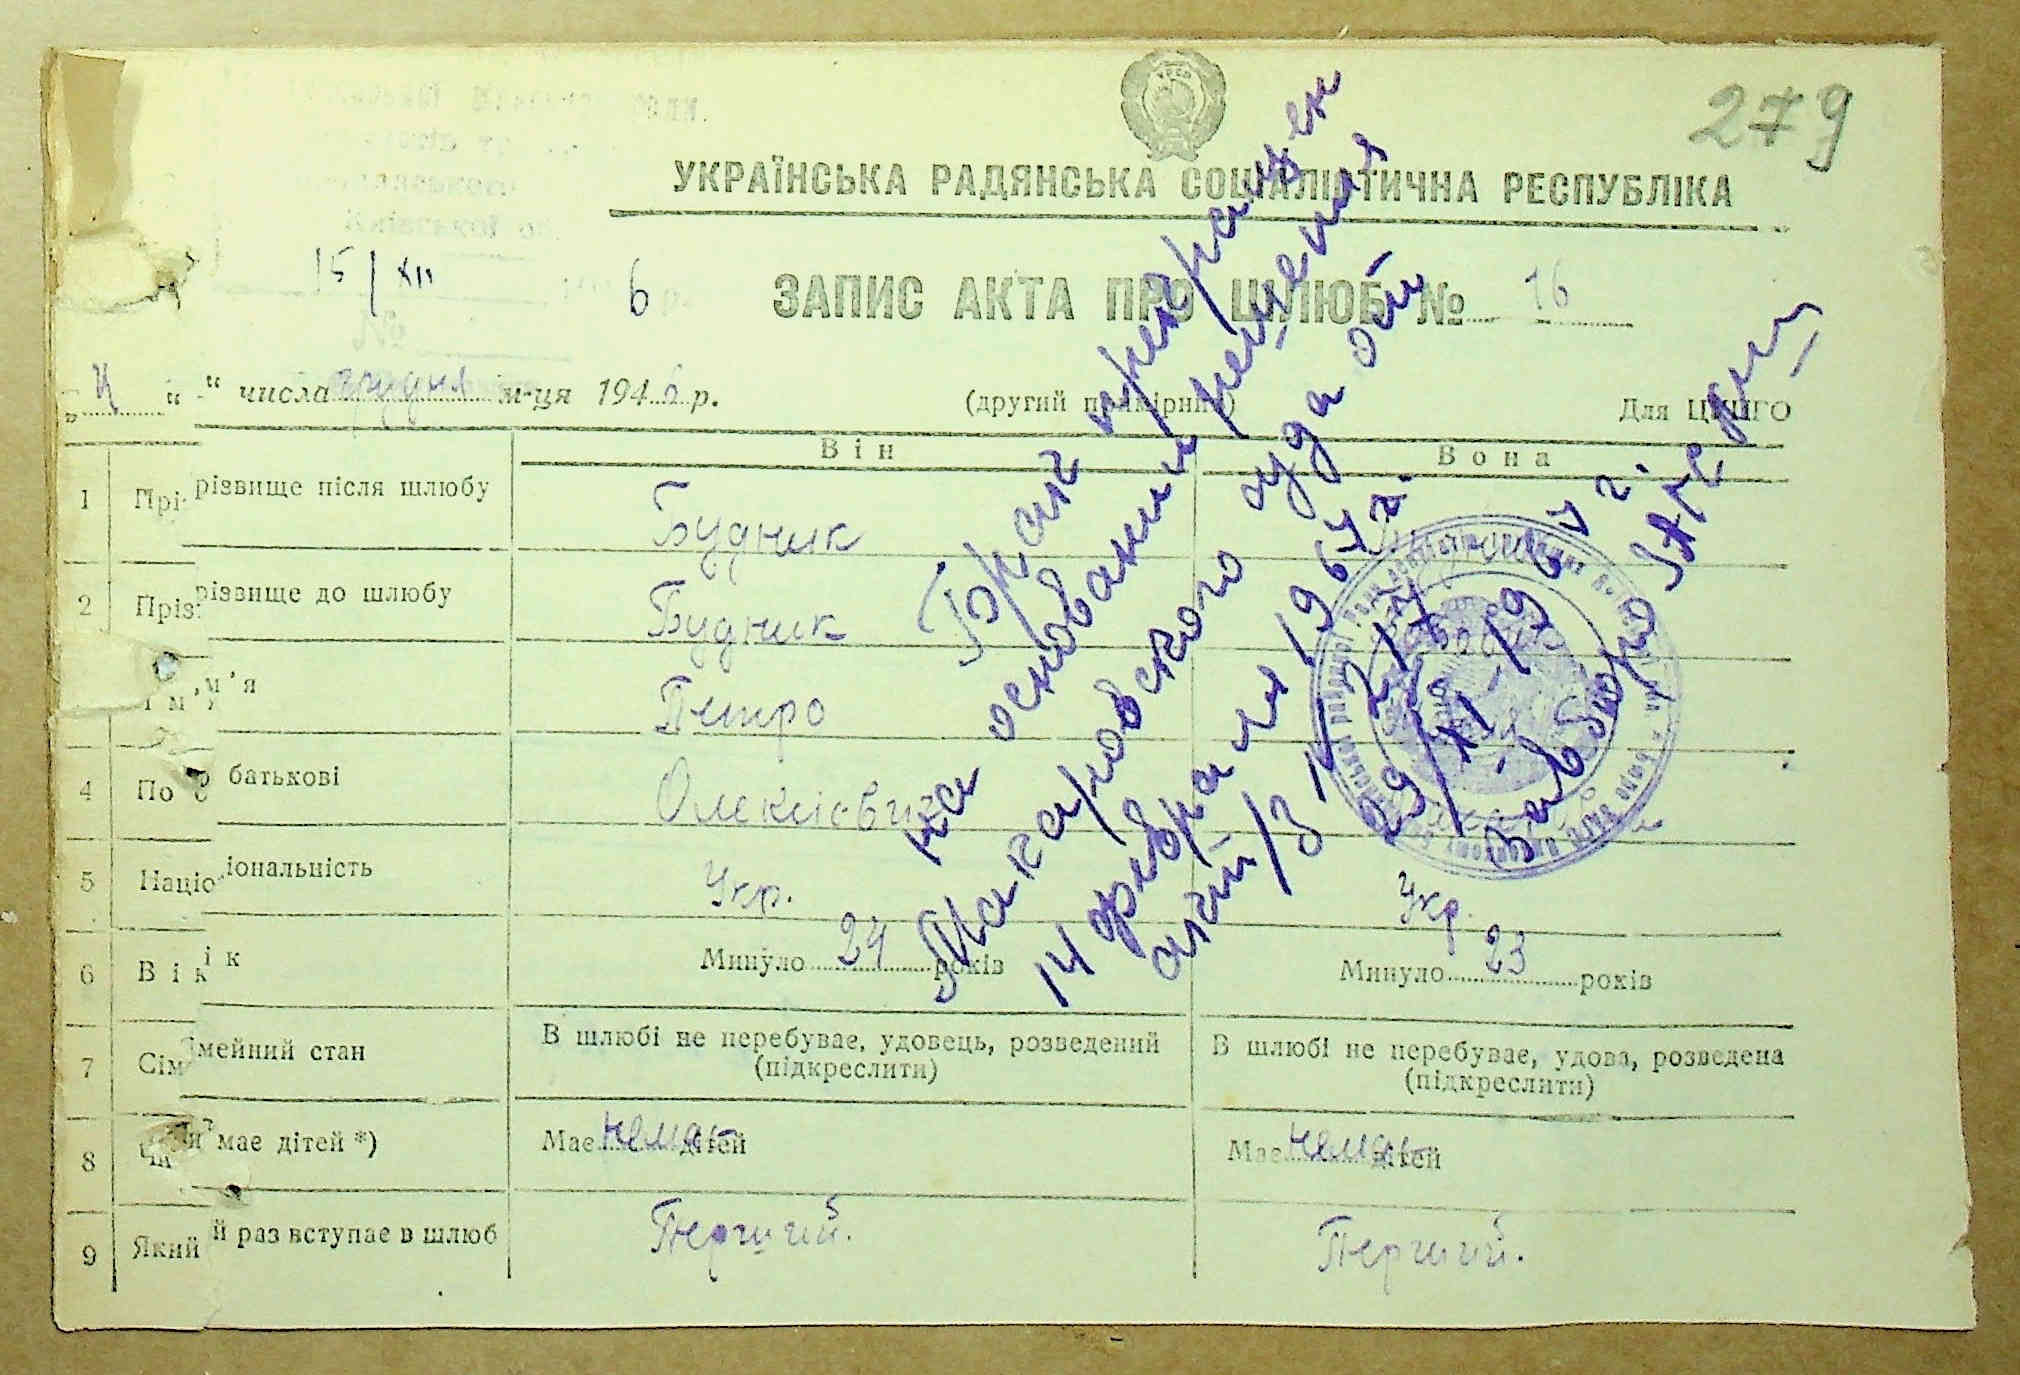 279
УКРАЇНСЬКА РАДЯНСЬКА СОЦІАЛІСТИЧНА РЕСПУБЛІКА
15/XII 6
ЗАПИС АКТА ПРО ШЛЮБ № 16
„ 4 “ числа грудня м-ця 1946 р.
(другий примірник)
Для ЦВІГО
Він
Вона
1 Прізвище після шлюбу Будник
2 Прізвище до шлюбу Будник
Ім'я Петро
4 По батькові Олексієвич
5 Національність Укр. Укр.
6 Вік Минуло 24 років Минуло 23 років
7 Сімейний стан В шлюбі не перебуває, удовець, розведений (підкреслити) В шлюбі не перебуває, удова, розведена (підкреслити)
8 Чи має дітей *) Має немає дітей Має немає дітей
9 Який раз вступає в шлюб Перший. Перший.
Брак прекращен
на основании решения
Макаровского суда от
14 февраля 1967 г.
29/XI-1967 г.